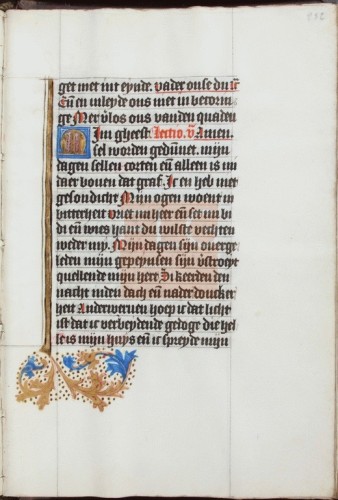 get met mit eynde. Vader onse du in
En en inleyde ons niet in becorin
ge Mer v'los ons vanden quaden
Min gheest Lectio. v. Amen.
sel worden gedunnet. mijn
dagen sellen corten en alleen is mi
daer boven dat graf. Ic en heb niet
gesondicht Mijn ogen woent in
bitterheit Vriet mi heer en set mi bi
di en wies hant du wilste vechten
weder my. Mijn dagen sijn overge
leden mijn gepeynsen sijn v'stroeyt
quellende mijn herte Di keerden den
nacht inden dach en nader doncker
heit Anderwerven hoep ic dat licht
ist dat ic verbeydende gedoge die hel
le is mijn huys en ic spreyde mijn